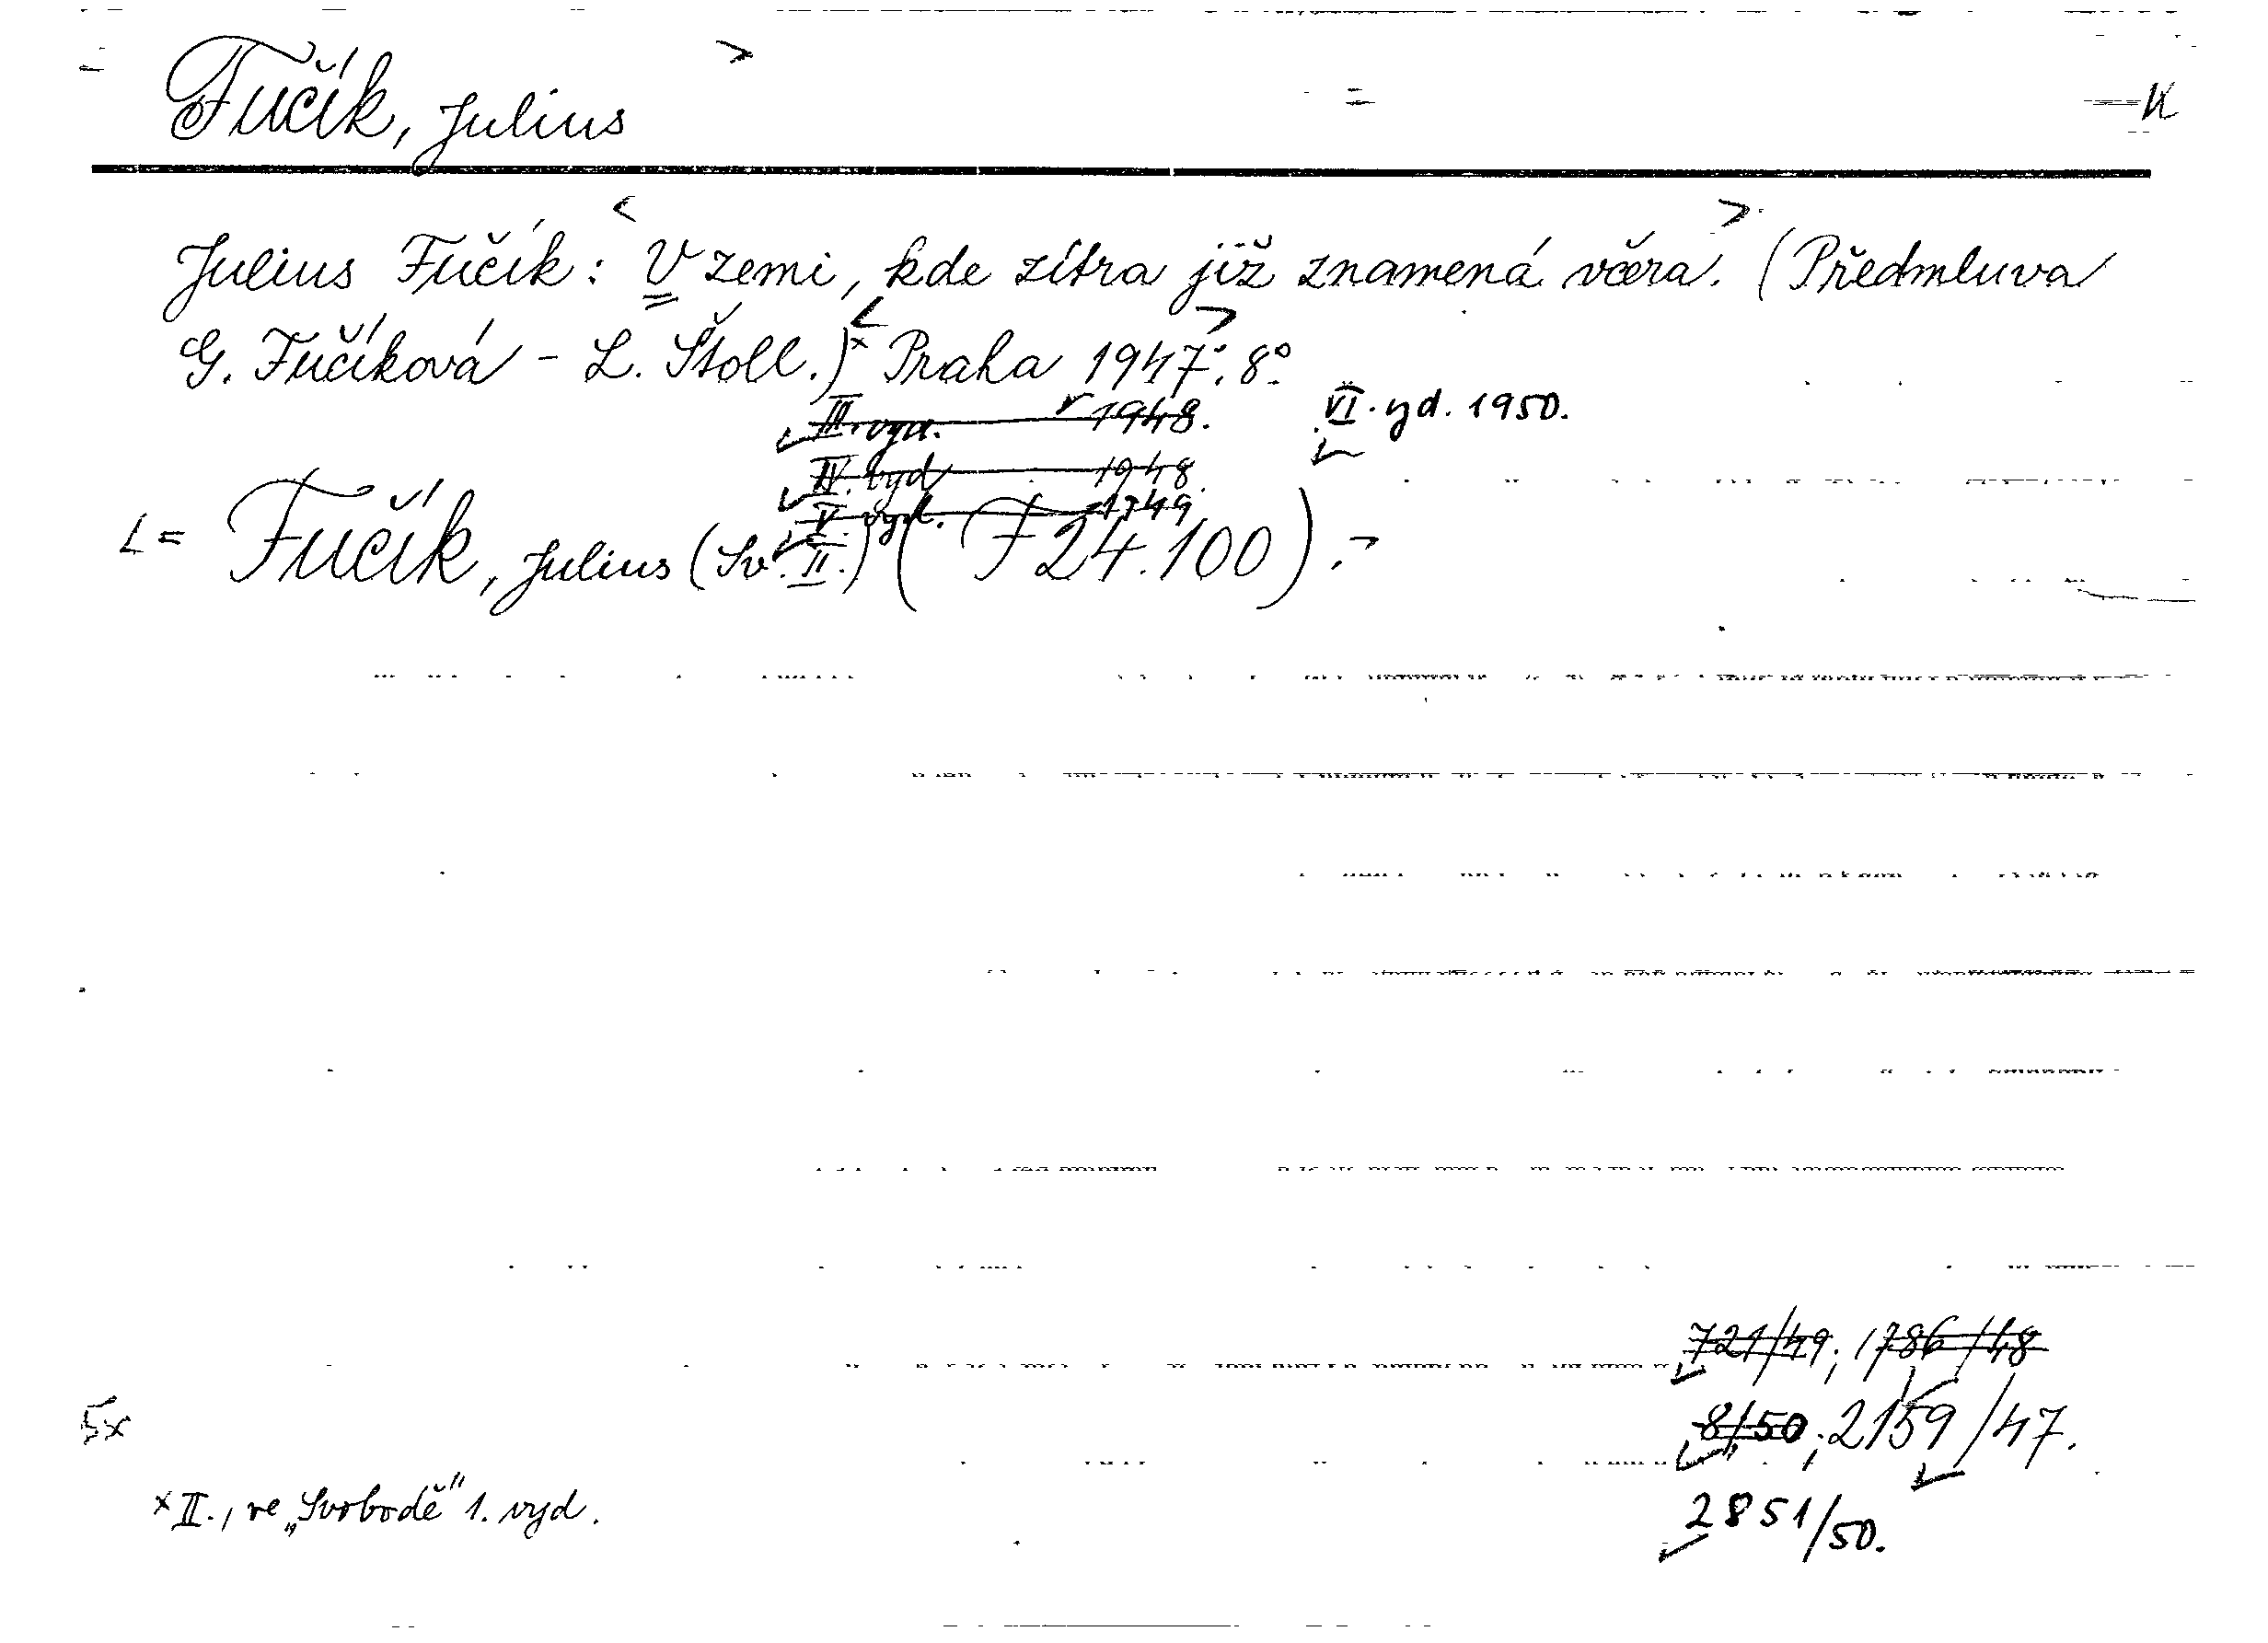 Fučík, Julius
K
Julius Fučík: V zemi, kde zítra již znamená včera. (Předmluva
G. Fučíková - L. Štoll.)x Praha 1947. 8°.
III. vyd. 1948.
VI. yd. 1950.
IV. vyd 1948.
V. vyd. 1949
= Fučík, Julius (Sv. II.) (F 24.100).
721/49; 1786/48
5x
8/50; 2159/47.
x II., ve „Svobodě" 1. vyd.
2851/50.